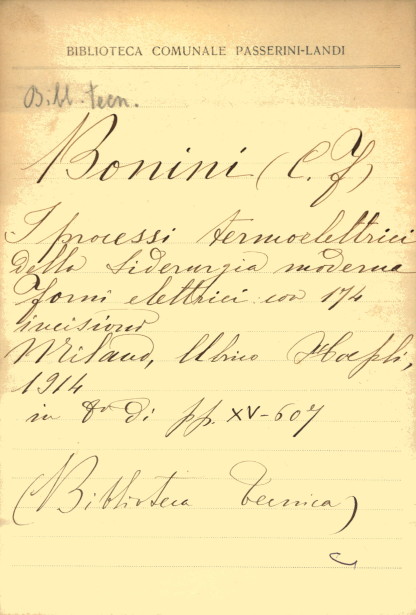 BIBLIOTECA COMUNALE PASSERINI-LANDI
Bibl. tecn.
Bonini (C. F)
I processi termoelettrici
della siderurgia moderna
Forni elettrici con 174
incisioni
Milano, Ulrico Hoepli,
1914
in 8º di pp. XV-607
(Biblioteca Tecnica)